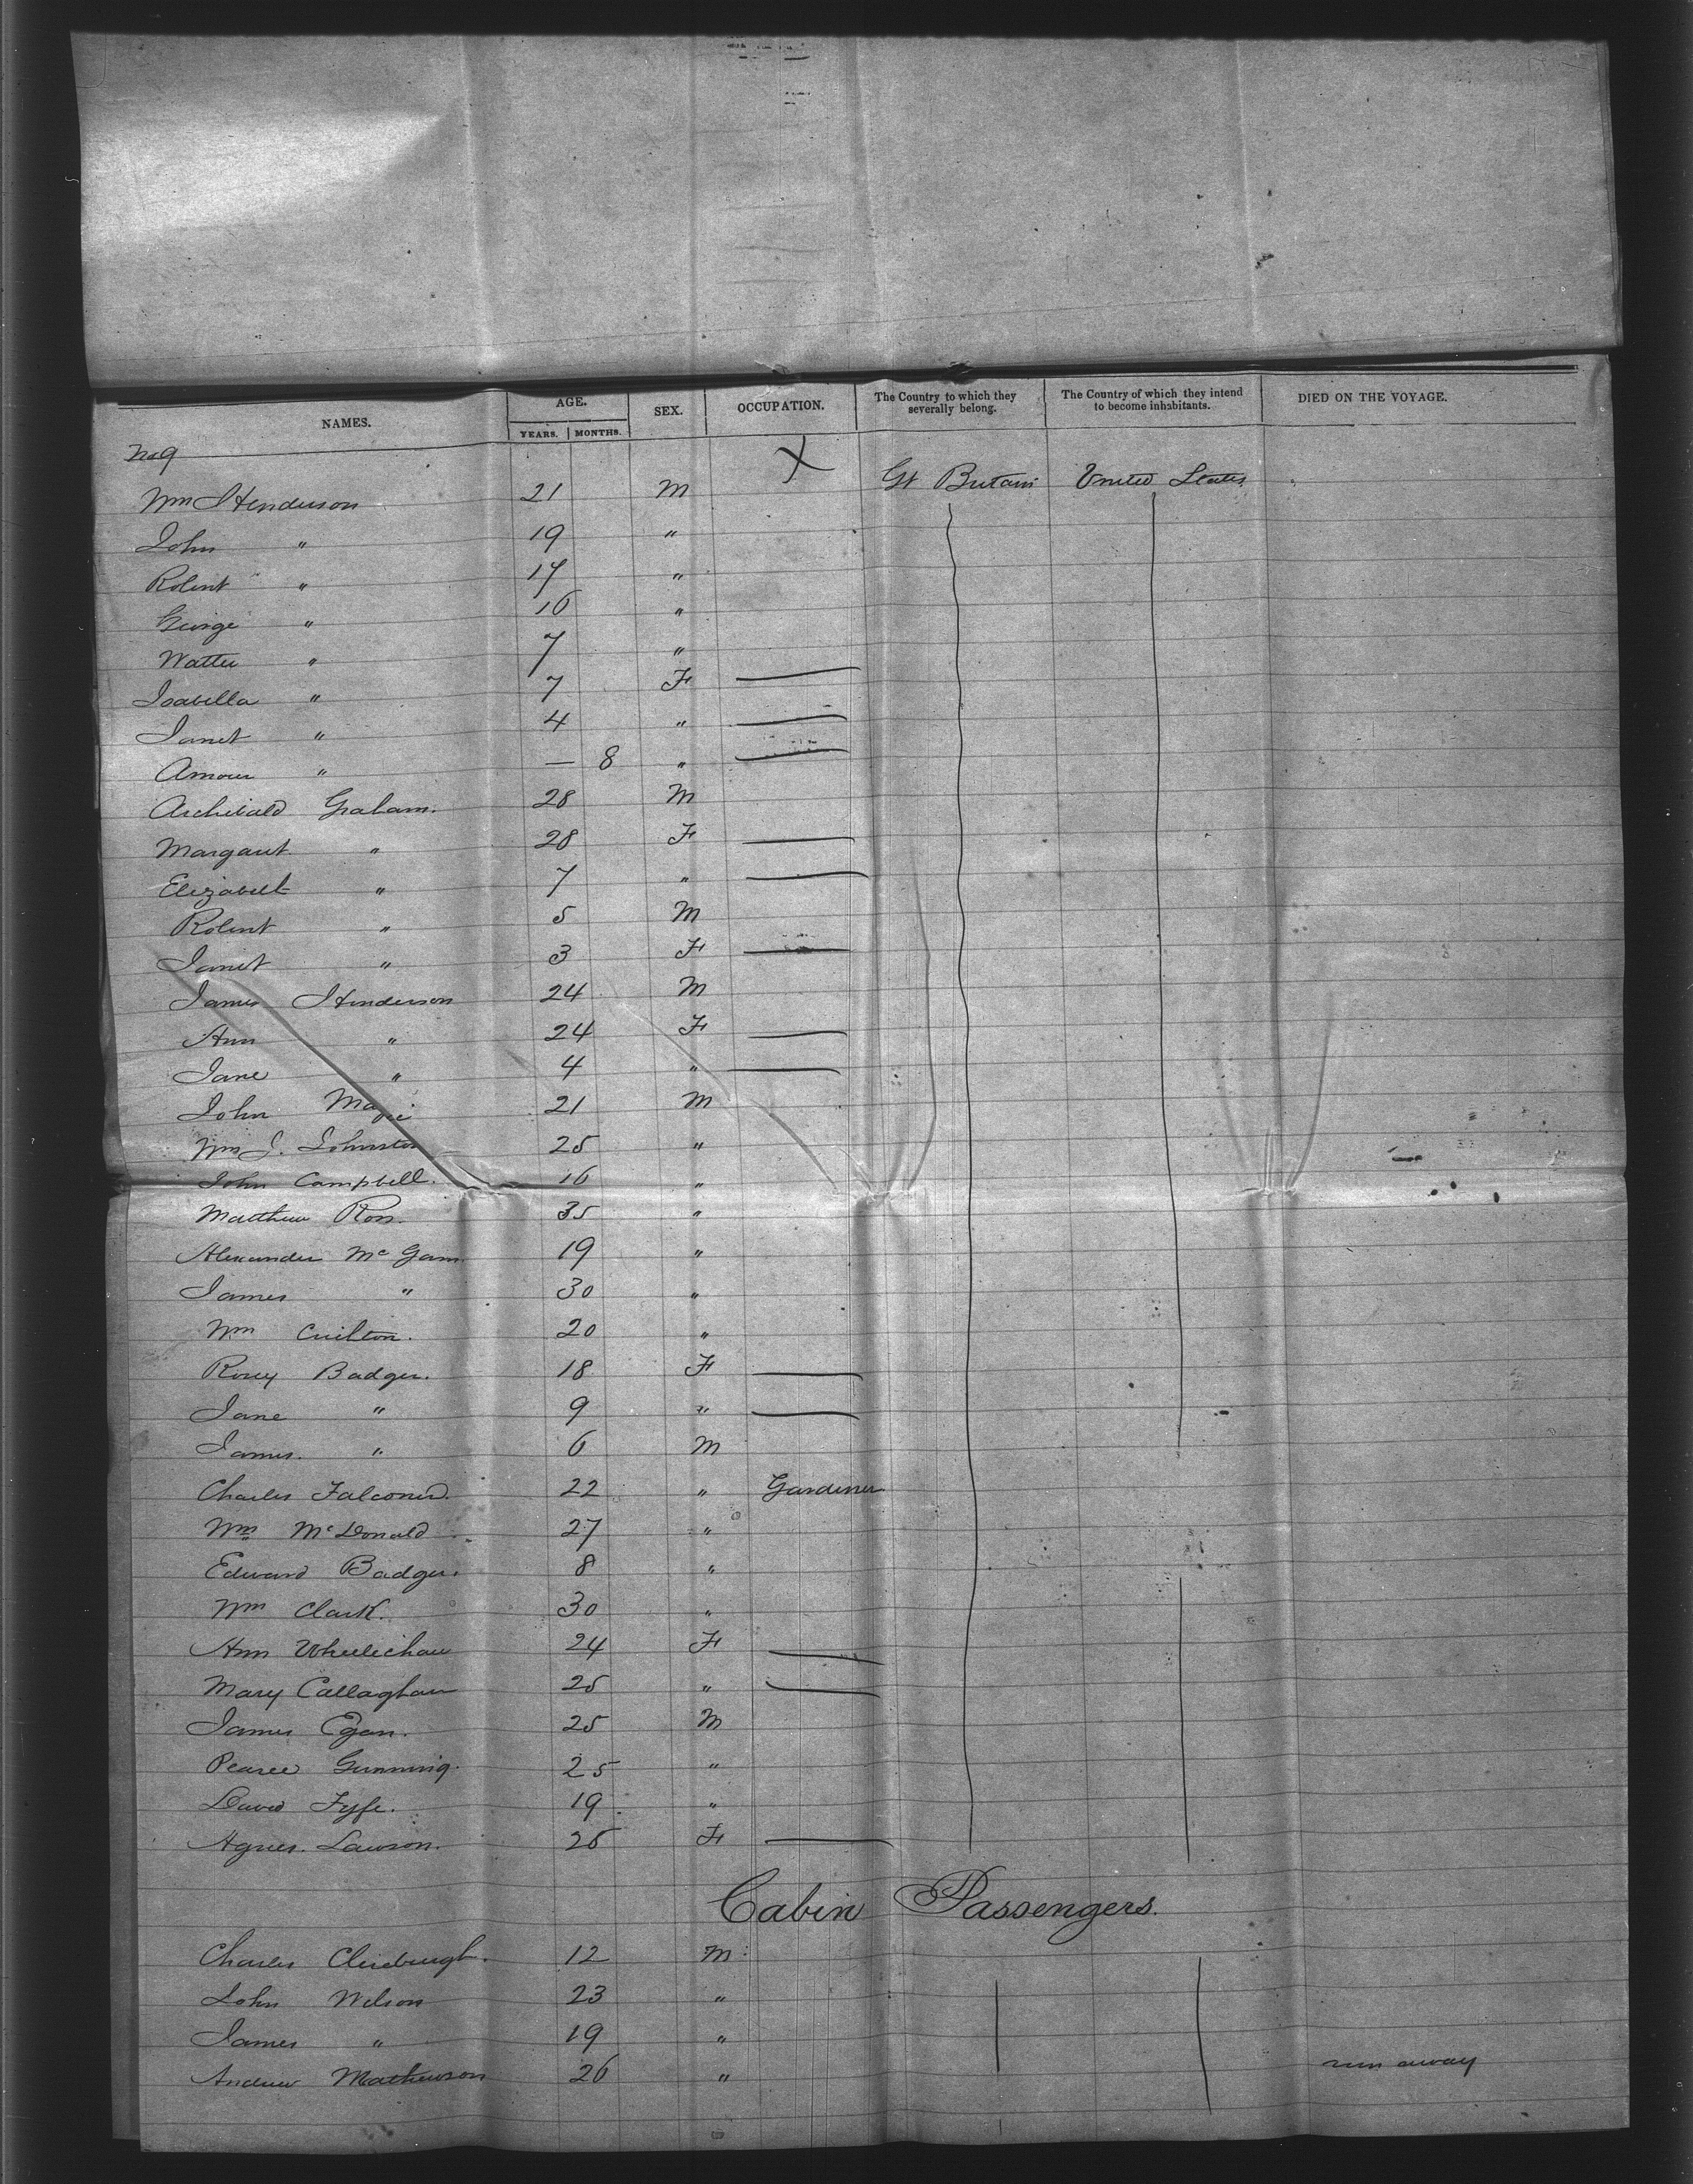 NAMES. AGE. SEX. OCCUPATION. The Country to which they severally belong. The Country of which they intend to become inhabitants. DIED ON THE VOYAGE.
YEARS. MONTHS.
No 9 X
Wm Henderson 21 M Gt Britain United States
John " 19 "
Robert " 17 "
George " 16 "
Walter " 7 "
Isabella " 7 F —
Janet " 4 " —
" — 8 " —
Archibald Graham. 28 M
Margaret " 28 F —
Elizabeth " 7 " —
Robert " 5 M
Janet " 3 F —
James Henderson 24 M
Ann " 24 F —
Jane " 4 " —
John 21 M
Wm J. Johnston 25 "
John Campbell. 16 "
Matthew Ross. 35 "
Alexander Mc Gam 19 "
James " 30 "
Wm 20 "
Rosey Badger. 18 F —
Jane " 9 " —
James. " 6 M
Charles Falconer. 22 " Gardener
Wm McDonald 27 "
Edward Badger. 8 "
Wm Clark. 30 "
Ann 24 F —
Mary Callaghan 25 " —
James Egan. 25 M
Pearce Gunning. 25 "
David Fyfe. 19 "
Agnes. Lawson. 25 F —
Cabin Passengers.
Charles 12 M
John Wilson 23 "
James " 19 "
Andrew Mathewson 26 " run away